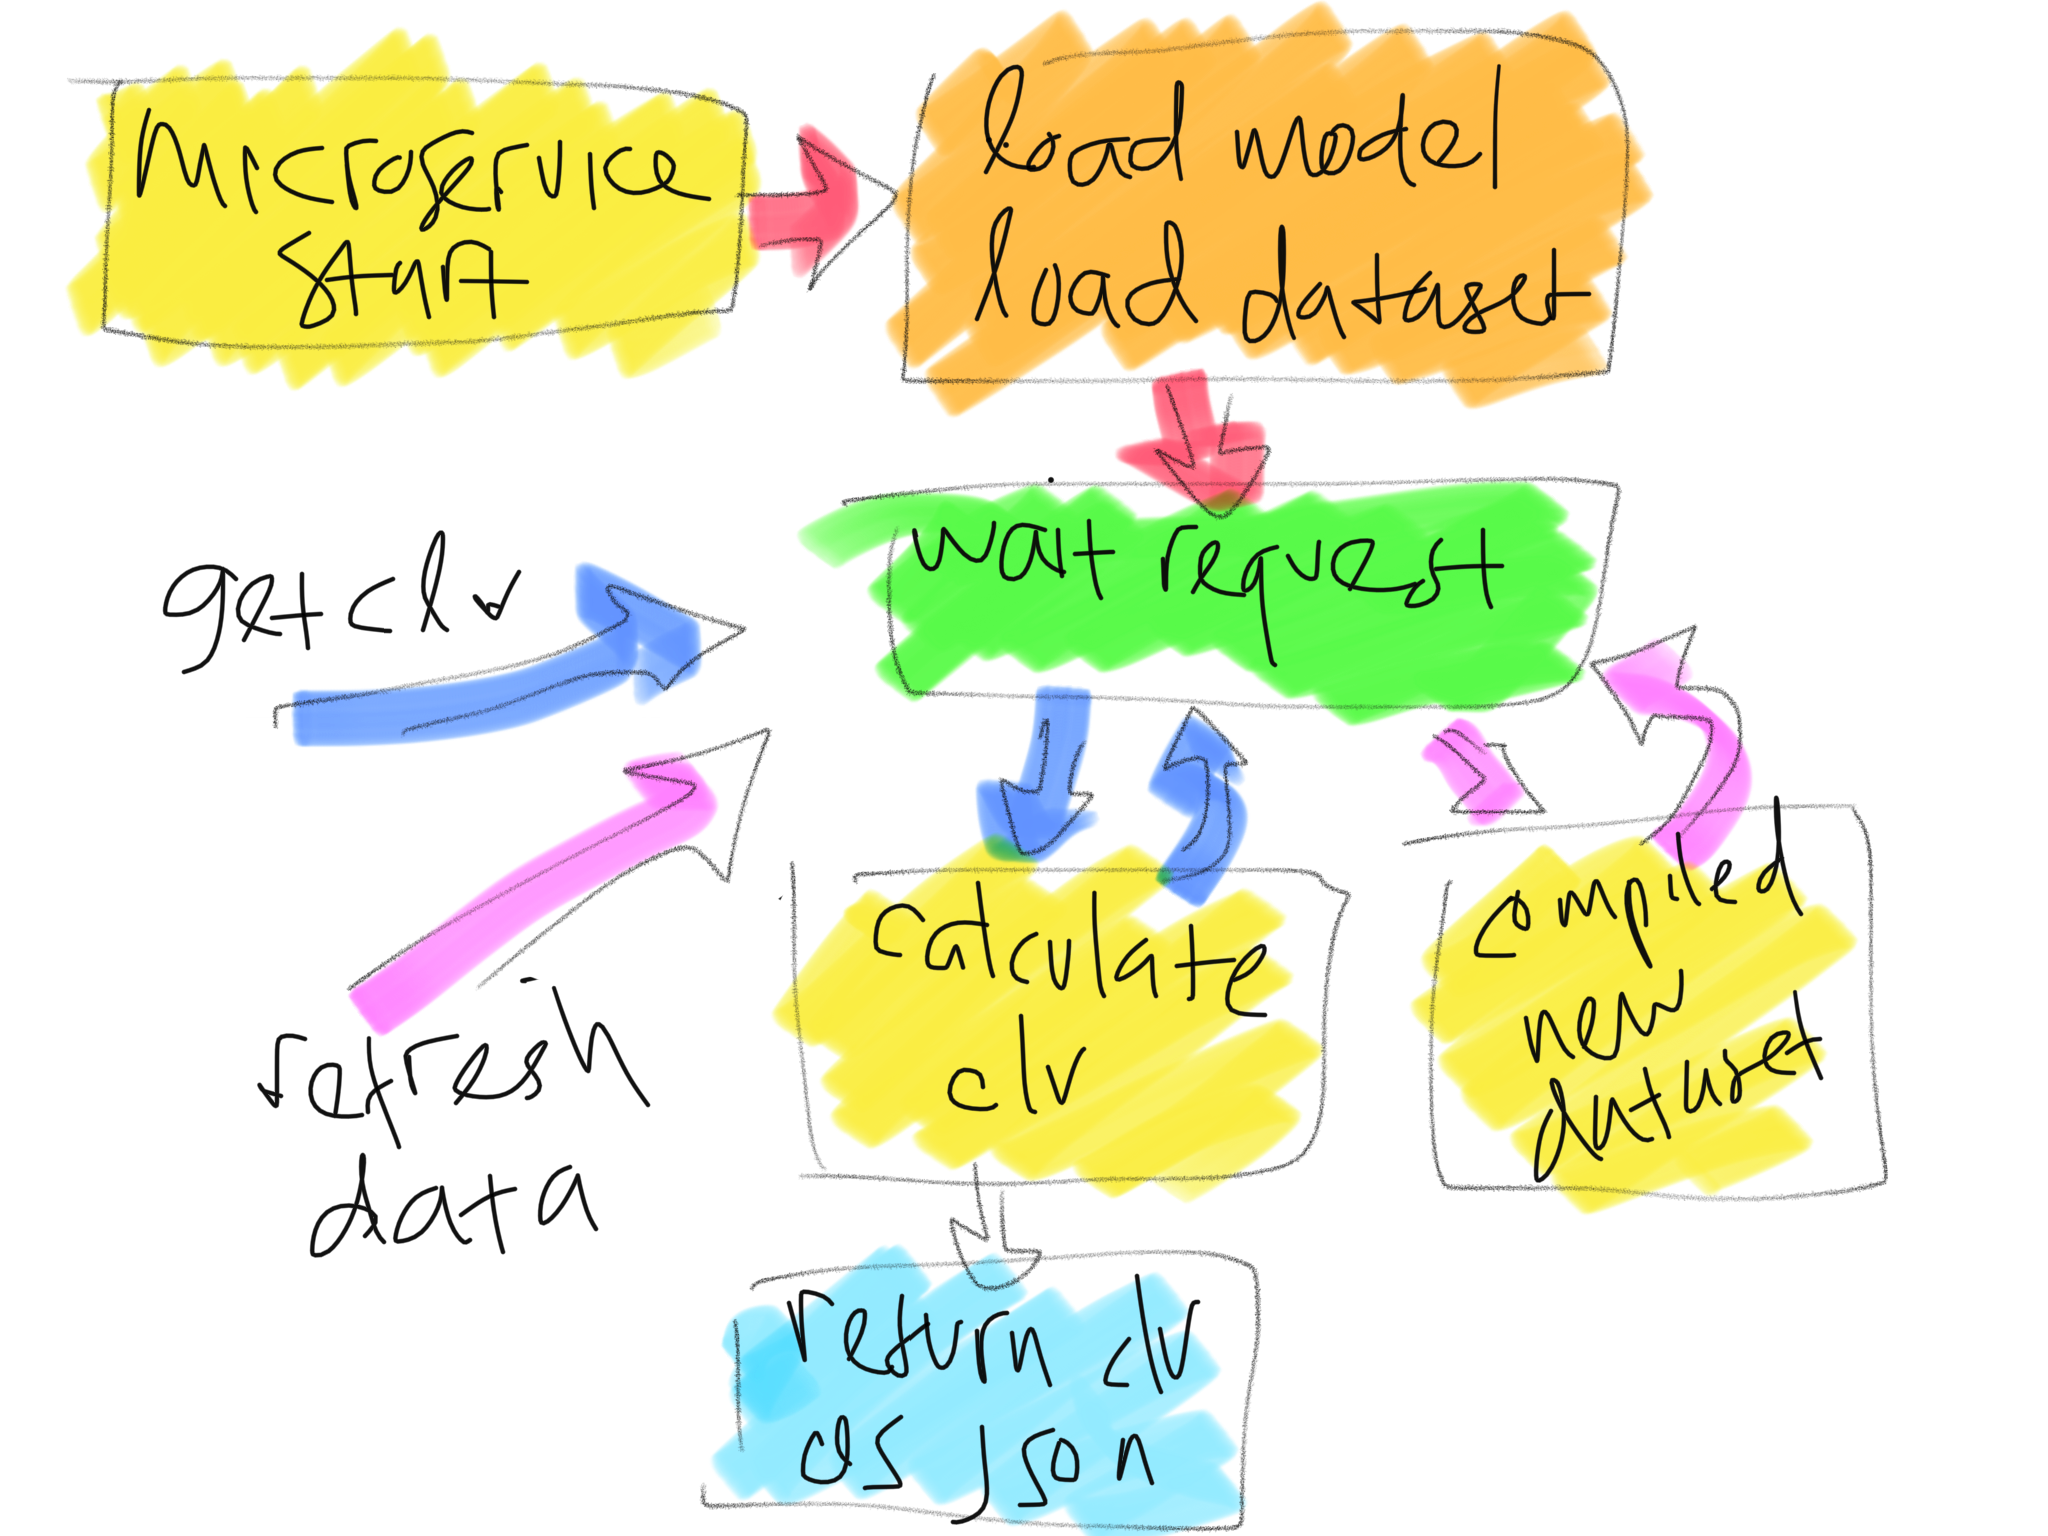 microservice
start
load model
load dataset
wait request
get clv
refresh
data
calculate
clv
compiled
new
dataset
return clv
as json